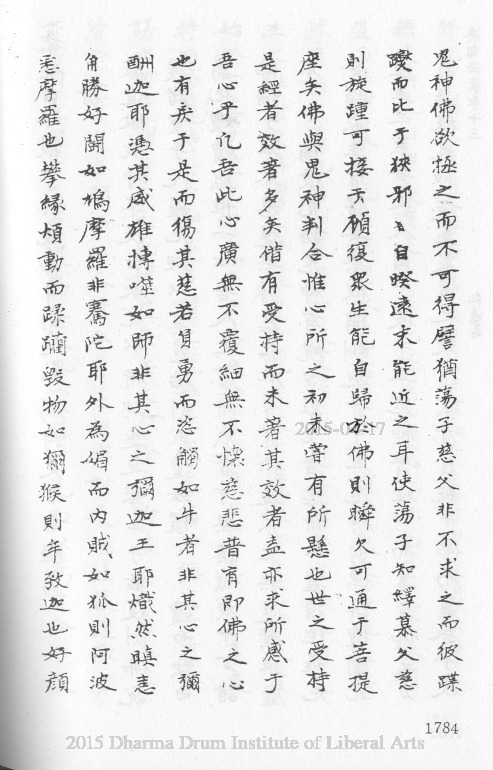 鬼神佛欲拯之而不可得譬猶蕩子慈父非不求之而彼蹀
躞而比于狹邪〻自暌遠未能近之耳使蕩子知繹慕父慈
則旋踵可接于顏復眾生能自歸於佛則瞬欠可通于菩提
座矣佛與鬼神判合惟心所之初未嘗有所懸也世之受持
是經者效著多矣偕有受持而未著其效者盍亦求所感于
吾心乎凢吾此心廣無不覆細無不懷慈悲普育即佛之心
也有戾于是而傷其慈若負勇而恣觸如牛者非其心之彌
酬迦耶憑其威雄搏噬如師非其心之彌迦王耶熾然瞋恚
角勝好鬪如鳩摩羅非騫陀耶外為媚而內賊如狐則阿波
悉摩羅也攀緣煩動而蹂躪毀物如獮猴則牟致迦也好顏
1784
2015 Dharma Drum Institute of Liberal Arts